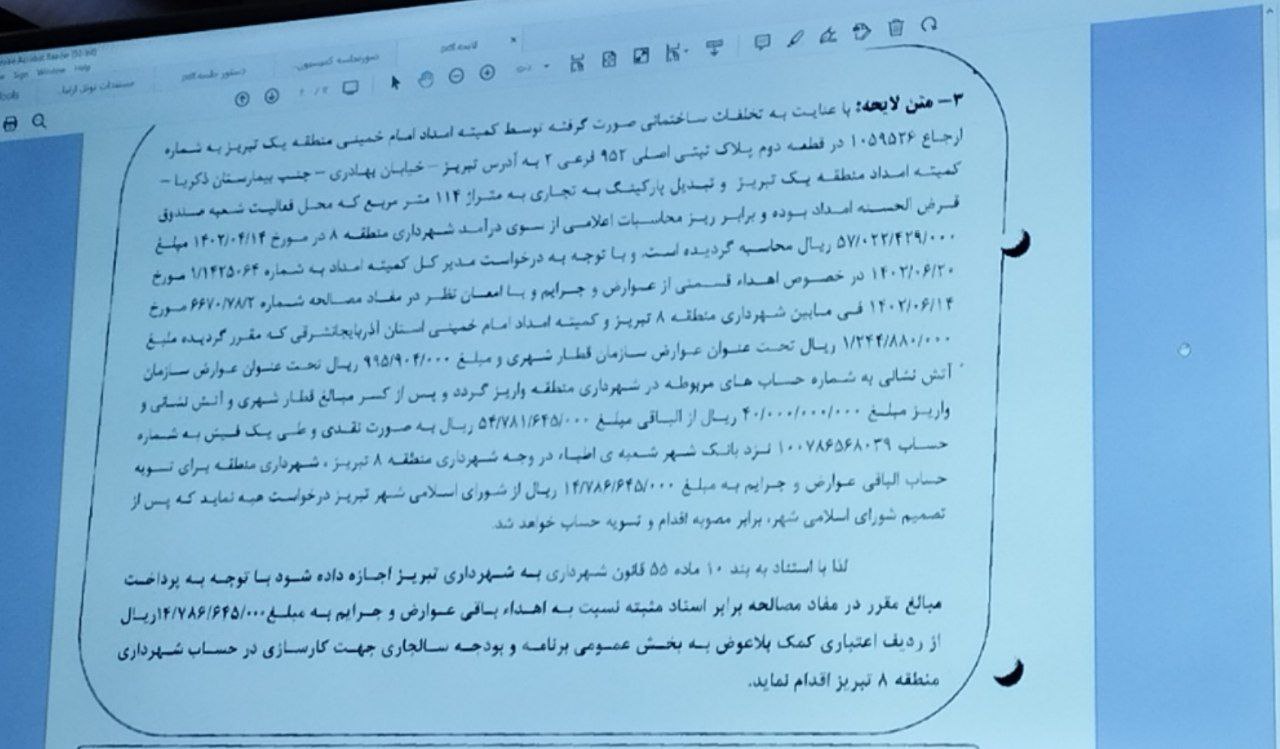 Adobe Acrobat Reader (32-bit)
Sign Window Help
Tools
مستندات
دستور جلسه.pdf
صورتجلسه کمیسیون...
لایحه.pdf
۳– متن لایحه: با عنایت به تخلفات ساختمانی صورت گرفته توسط کمیته امداد امام خمینی منطقه یک تبریز به شماره
ارجاع ۱۰۵۹۵۲۶ در قطعه دوم پلاک ثبتی اصلی ۹۵۲ فرعی ۲ به آدرس تبریز – خیابان بهادری – جنب بیمارستان ذکریا –
کمیته امداد منطقه یک تبریز و تبدیل پارکینگ به تجاری به متراژ ۱۱۴ متر مربع که محل فعالیت شعبه صندوق
قرض الحسنه امداد بوده و برابر ریز محاسبات اعلامی از سوی درآمد شهرداری منطقه ۸ در مورخ ۱۴۰۲/۰۴/۱۴ مبلغ
۵۷/۰۲۲/۴۲۹/۰۰۰ ریال محاسبه گردیده است. و با توجه به درخواست مدیر کل کمیته امداد به شماره ۱/۱۴۲۵۰۶۴ مورخ
۱۴۰۲/۰۶/۲۰ در خصوص اهداء قسمتی از عوارض و جرایم و با امعان نظر در مفاد مصالحه شماره ۶۶۷۰/۷۸/۲ مورخ
۱۴۰۲/۰۶/۱۴ فی مابین شهرداری منطقه ۸ تبریز و کمیته امداد امام خمینی استان آذربایجانشرقی که مقرر گردیده مبلغ
۱/۲۴۴/۸۸۰/۰۰۰ ریال تحت عنوان عوارض سازمان قطار شهری و مبلغ ۹۹۵/۹۰۴/۰۰۰ ریال تحت عنوان عوارض سازمان
آتش نشانی به شماره حساب های مربوطه در شهرداری منطقه واریز گردد و پس از کسر مبالغ قطار شهری و آتش نشانی و
واریز مبلغ ۴۰/۰۰۰/۰۰۰/۰۰۰ ریال از الباقی مبلغ ۵۴/۷۸۱/۶۴۵/۰۰۰ ریال به صورت نقدی و طی یک فیش به شماره
حساب ۱۰۰۷۸۶۵۶۸۰۳۹ نزد بانک شهر شعبه ی اطباء در وجه شهرداری منطقه ۸ تبریز ، شهرداری منطقه برای تسویه
حساب الباقی عوارض و جرایم به مبلغ ۱۴/۷۸۶/۶۴۵/۰۰۰ ریال از شورای اسلامی شهر تبریز درخواست هبه نماید که پس از
تصمیم شورای اسلامی شهر، برابر مصوبه اقدام و تسویه حساب خواهد شد.
لذا با استناد به بند ۱۰ ماده ۵۵ قانون شهرداری به شهرداری تبریز اجازه داده شود با توجه به پرداخت
مبالغ مقرر در مفاد مصالحه برابر اسناد مثبته نسبت به اهداء باقی عوارض و جرایم به مبلغ ۱۴/۷۸۶/۶۴۵/۰۰۰ریال
از ردیف اعتباری کمک بلاعوض به بخش عمومی برنامه و بودجه سالجاری جهت کارسازی در حساب شهرداری
منطقه ۸ تبریز اقدام نماید.